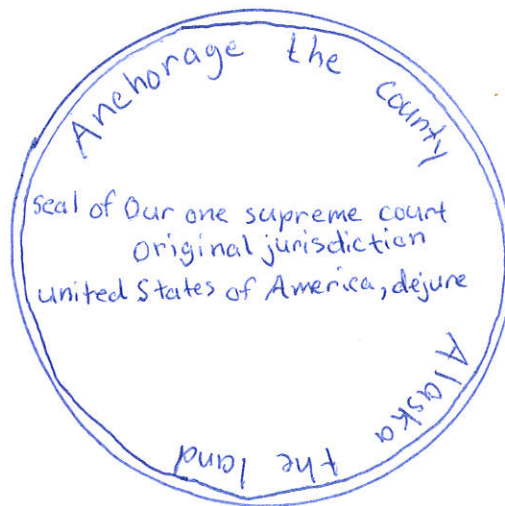 Anchorage the county
seal of Our one supreme court
Original jurisdiction
united States of America, dejure
Alaska the land